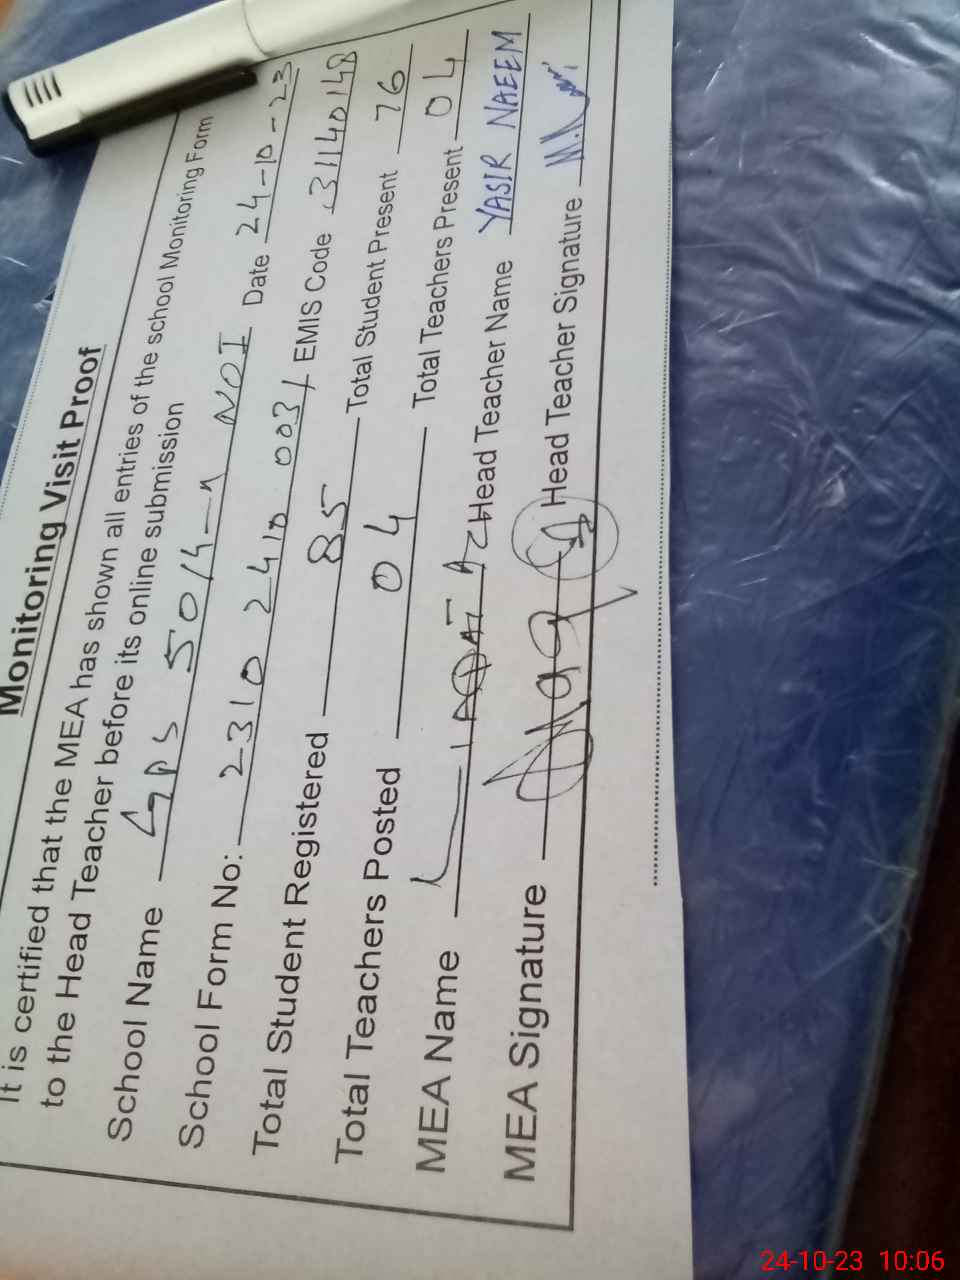 Monitoring Visit Proof
It is certified that the MEA has shown all entries of the school Monitoring Form
to the Head Teacher before its online submission
School Name GPS 50/4-R NOI Date 24-10-23
School Form No: 2310 2410 003/ EMIS Code 31140148
Total Student Registered 85 Total Student Present 76
Total Teachers Posted 04 Total Teachers Present 04
MEA Name LIAQAT Head Teacher Name YASIR NAEEM
MEA Signature Head Teacher Signature
24-10-23 10:06